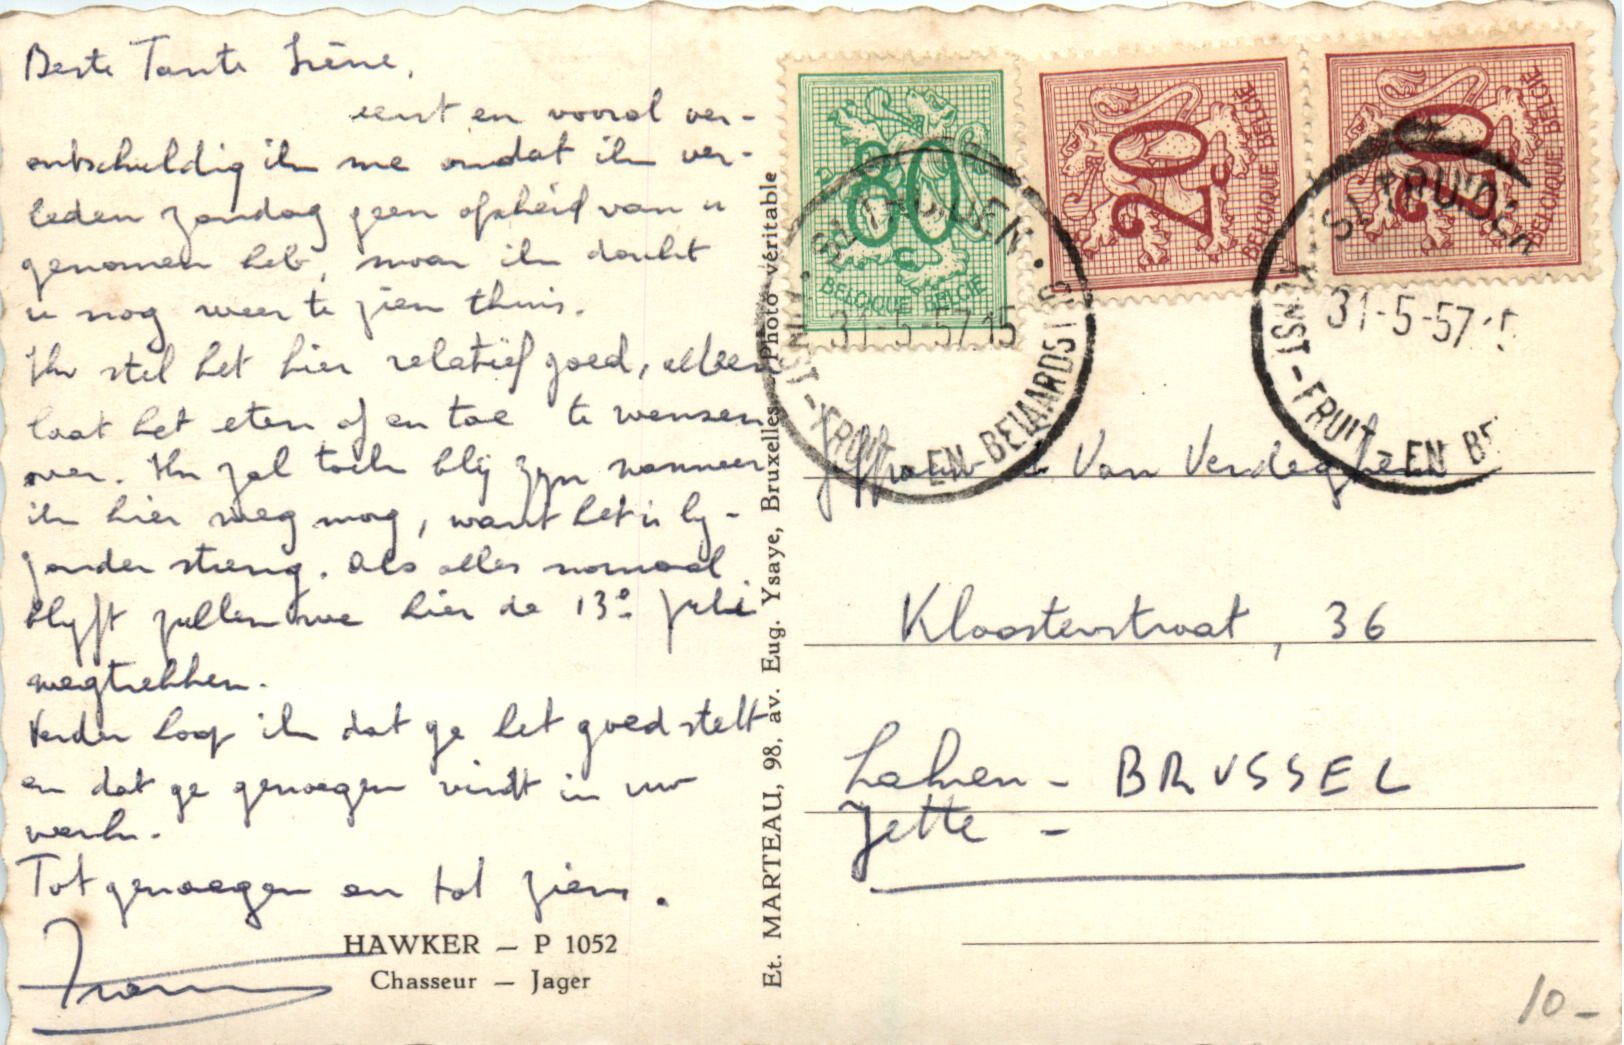 Beste Tante Irène,
eerst en vooral ver-
ontschuldig ik me omdat ik ver-
leden zondag geen afscheid van u
genomen heb, maar ik dacht
u nog weer te zien thuis.
Ik stel het hier relatief goed, alleen
laat het eten af en toe te wensen
over. Ik zal toch blij zijn wanneer
ik hier weg mag, want het is by-
zonder streng. Als alles normaal
blyft zullen we hier de 13e Juli
wegtrekken.
Verder hoop ik dat ge het goed stelt
en dat ge genoegen vindt in uw
werk.
Tot genoegen en tot ziens.
HAWKER — P 1052
Chasseur — Jager
Et. MARTEAU, 98, av. Eug. Ysaye, Bruxelles, Photo véritable
80 c
BELGIQUE BELGIE
20 c
BELGIQUE BELGIE
20 c
BELGIQUE BELGIE
ST TRUIDEN
31-5-57 15
KUNST-FRUIT-EN-BEIAARDST
ST TRUIDEN
31-5-57 15
KUNST-FRUIT-EN BE
Van Verdeghem
Kloosterstraat, 36
Laken - BRUSSEL
Jette -
10 -